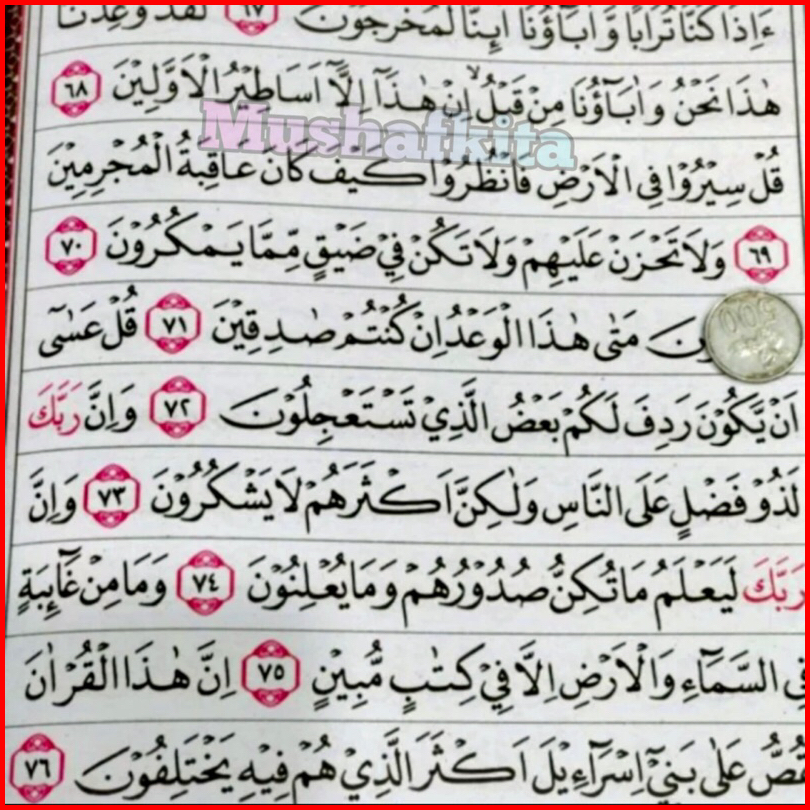 ءَاِذَا كُنَّا تُرَابًا وَّاٰبَآؤُنَآ اَىِٕنَّا لَمُخْرَجُوْنَ ٦٧ لَقَدْ وُعِدْنَا
هٰذَا نَحْنُ وَاٰبَآؤُنَا مِنْ قَبْلُۙ اِنْ هٰذَآ اِلَّآ اَسَاطِيْرُ الْاَوَّلِيْنَ ٦٨
Mushafkita
قُلْ سِيْرُوْا فِى الْاَرْضِ فَانْظُرُوْا كَيْفَ كَانَ عَاقِبَةُ الْمُجْرِمِيْنَ
٦٩ وَلَا تَحْزَنْ عَلَيْهِمْ وَلَا تَكُنْ فِيْ ضَيْقٍ مِّمَّا يَمْكُرُوْنَ ٧٠
مَتٰى هٰذَا الْوَعْدُ اِنْ كُنْتُمْ صٰدِقِيْنَ ٧١ قُلْ عَسٰٓى
500
اَنْ يَّكُوْنَ رَدِفَ لَكُمْ بَعْضُ الَّذِيْ تَسْتَعْجِلُوْنَ ٧٢ وَاِنَّ رَبَّكَ
لَذُوْ فَضْلٍ عَلَى النَّاسِ وَلٰكِنَّ اَكْثَرَهُمْ لَا يَشْكُرُوْنَ ٧٣ وَاِنَّ
رَبَّكَ لَيَعْلَمُ مَا تُكِنُّ صُدُوْرُهُمْ وَمَا يُعْلِنُوْنَ ٧٤ وَمَا مِنْ غَآىِٕبَةٍ
فِى السَّمَآءِ وَالْاَرْضِ اِلَّا فِيْ كِتٰبٍ مُّبِيْنٍ ٧٥ اِنَّ هٰذَا الْقُرْاٰنَ
عَلٰى بَنِيْٓ اِسْرَآءِيْلَ اَكْثَرَ الَّذِيْ هُمْ فِيْهِ يَخْتَلِفُوْنَ ٧٦